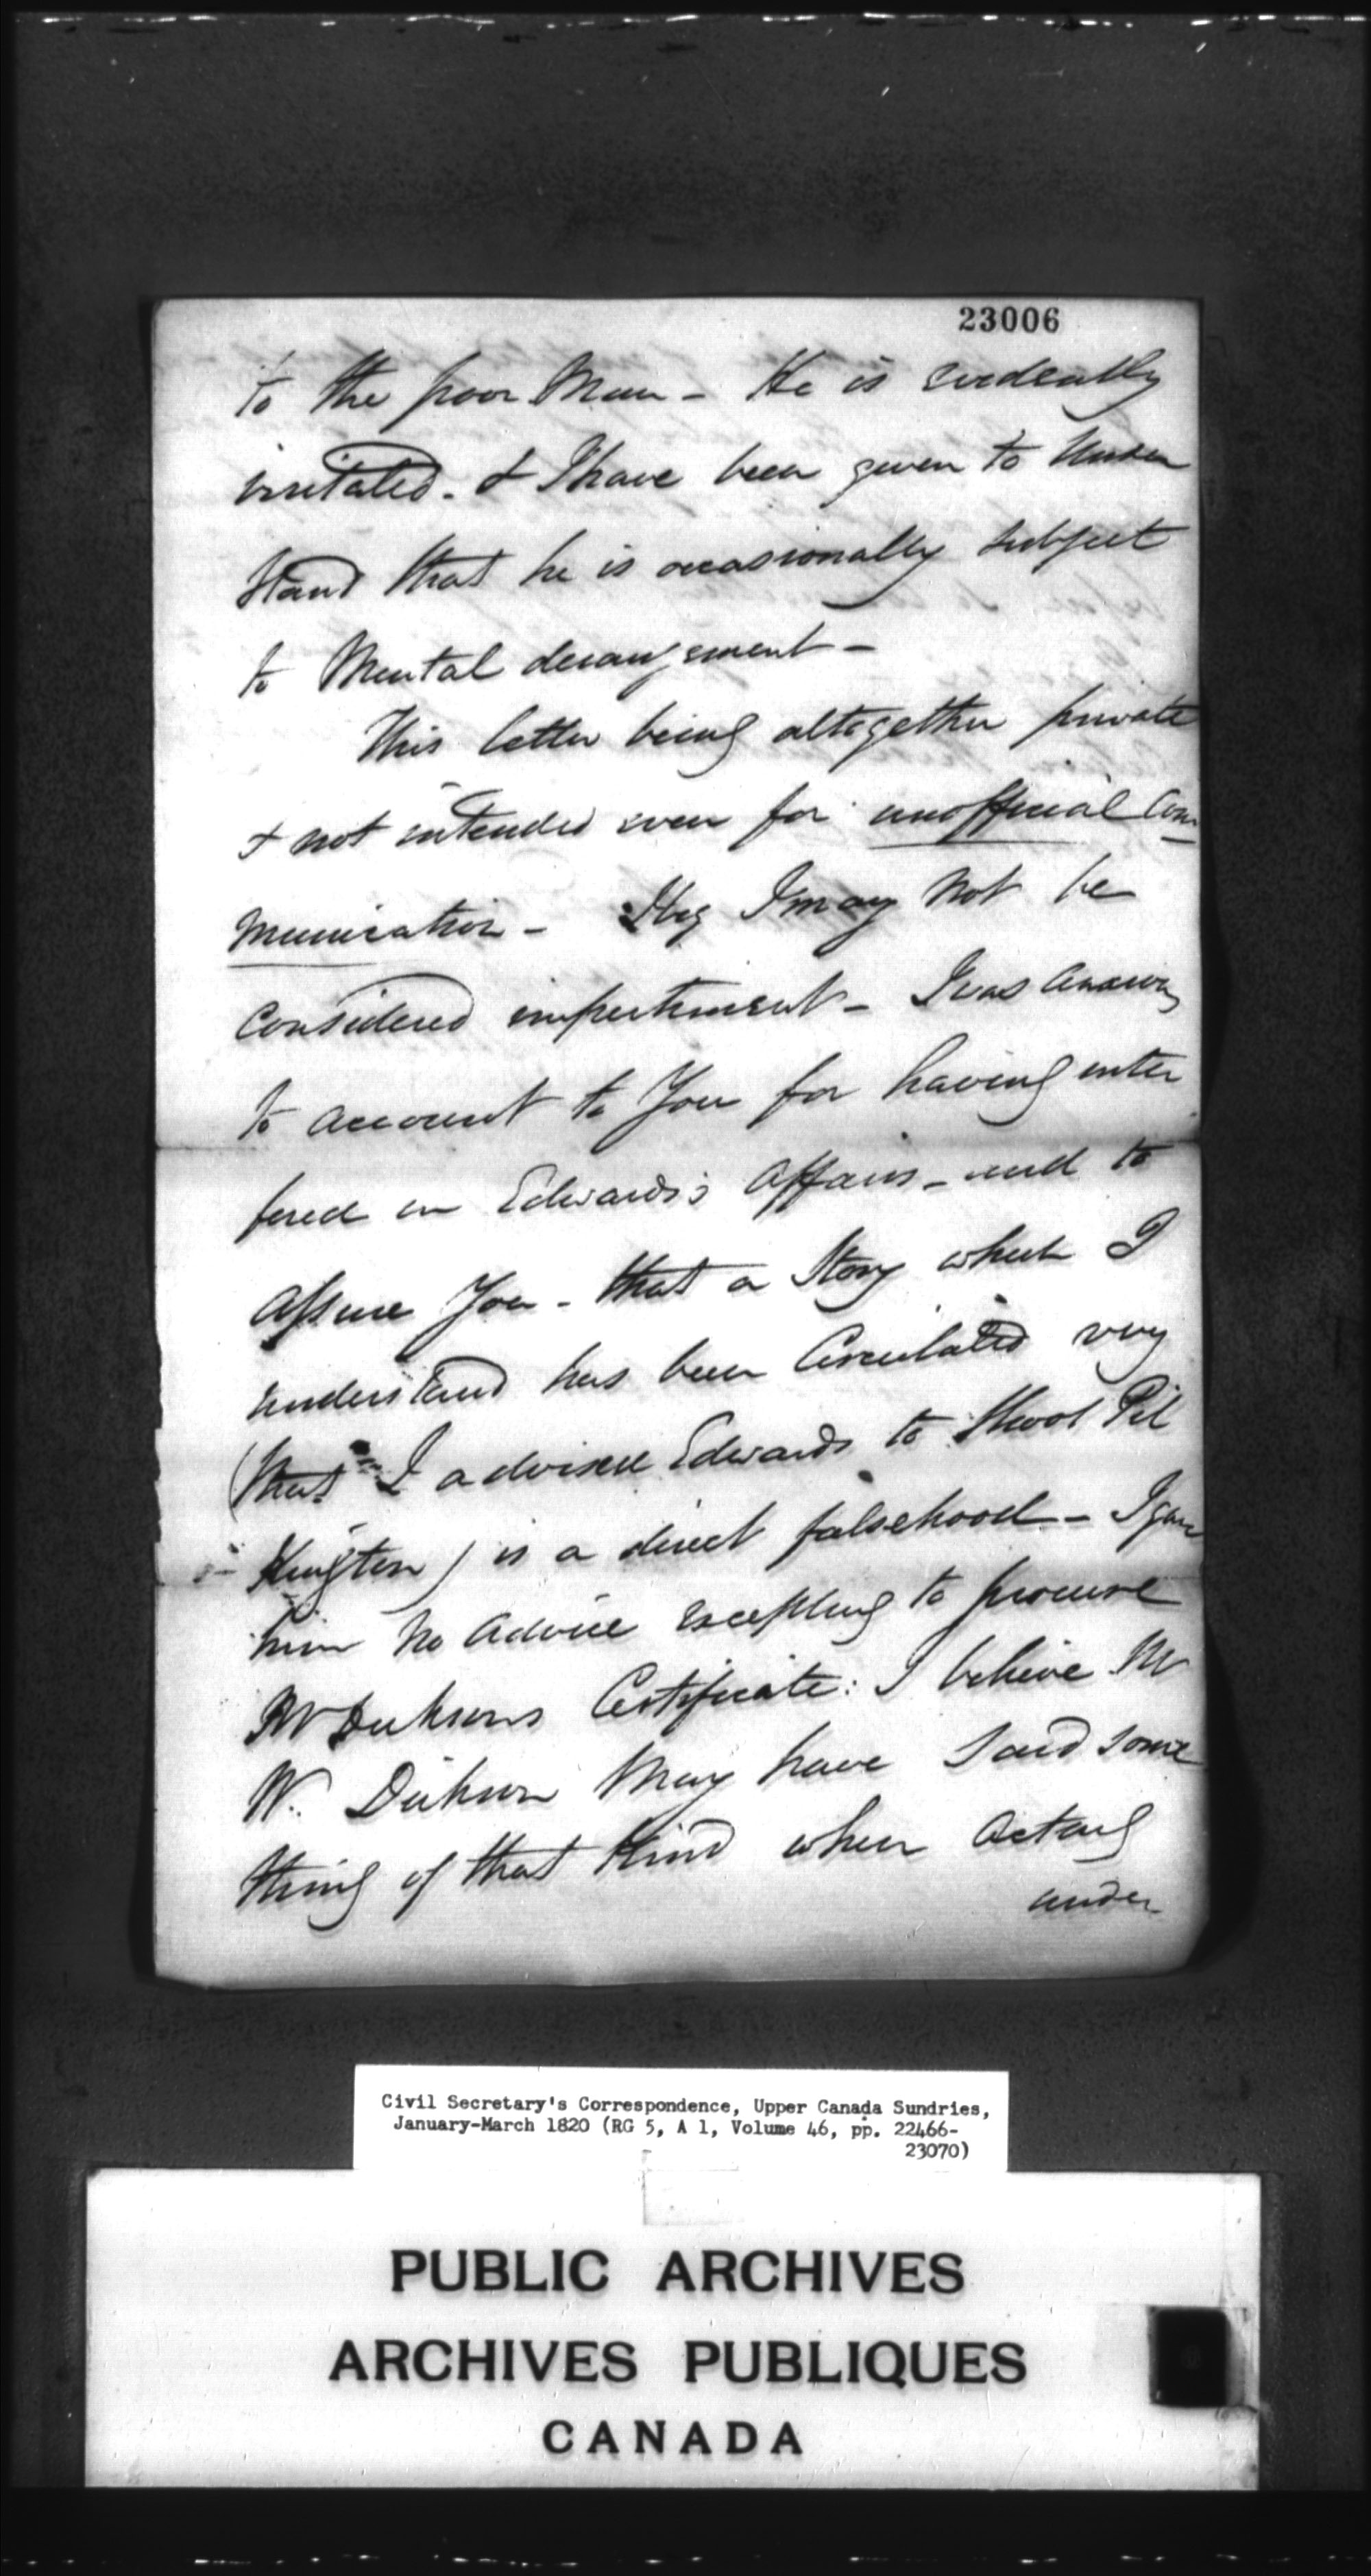 23006
to the poor Man - He is evidently
irritated. & I have been given to under
stand that he is occasionally subject
to Mental derangement -
This letter being altogether private
& not intended even for unofficial Com
munication - I beg I may not be
Considered impertinent - I was anxious
to account to You for having inter
fered in Edwards's affairs - and to
assure You - that a Story which I
understand has been Circulated very
(that I advised Edwards to shoot Pil
kington) is a direct falsehood - I gave
him no advice excepting to procure
Mr Dicksons Certificate: I believe Mr
W. Dickson May have said some
thing of that kind when acting
under
Civil Secretary's Correspondence, Upper Canada Sundries,
January-March 1820 (RG 5, A 1, Volume 46, pp. 22466-
23070)
PUBLIC ARCHIVES
ARCHIVES PUBLIQUES
CANADA